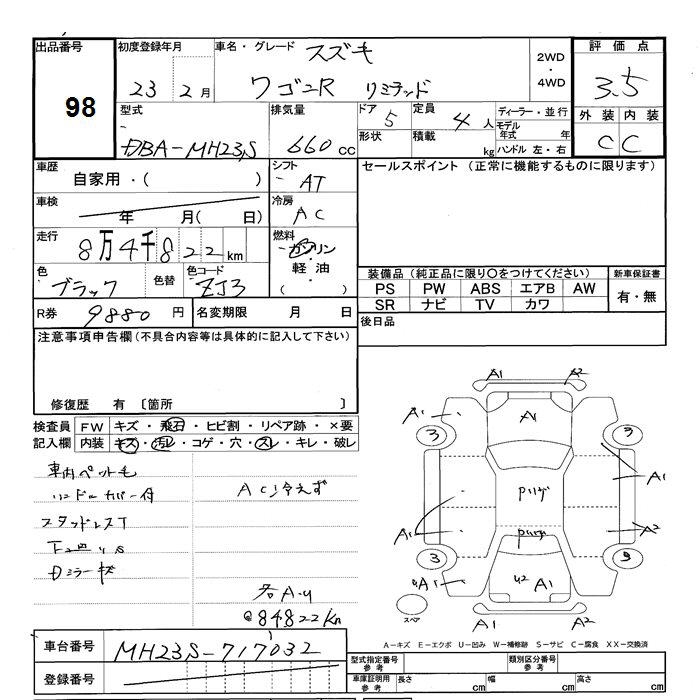 出品番号 初度登録年月 車名・グレード スズキ 2WD・4WD 評価点
98 23 2月 ワゴンR リミテッド 3.5
型式 排気量 ドア 5 定員 4人 ディーラー・並行 外装 内装
モデル年式 年
DBA-MH23S 660cc 形状 積載 kg ハンドル 左・右 C C
車歴 自家用・( ) シフト AT セールスポイント (正常に機能するものに限ります)
車検 年 月( 日) 冷房 AC
走行 8万4千822km 燃料 ガソリン・軽油 ( )
色 ブラック 色替 色コード ZJ3
装備品 (純正品に限り○をつけてください) 新車保証書
PS PW ABS エアB AW 有・無
SR ナビ TV カワ
R券 9880円 名変期限 月 日 後日品
注意事項申告欄(不具合内容等は具体的に記入して下さい)
修復歴 有 〔箇所 〕
検査員 FW キズ・飛石・ヒビ割・リペア跡・×要
記入欄 内装 キズ・汚れ・コゲ・穴・スレ・キレ・破レ
車内ペット毛
ハンドルカバー付
AC冷えず
スタッドレスT
Dミラーキズ
@84822Km
A1 A2
A1 A1
3 3
A1
A1 A2
3 3
A1 A1
スペア A1 A2
A-キズ E-エクボ U-凹み W-補修跡 S-サビ C-腐食 XX-交換済
車台番号 MH23S-717032
登録番号
型式指定番号 参考 類別区分番号 参考
車庫証明用 参考 長さ cm 幅 cm 高さ cm